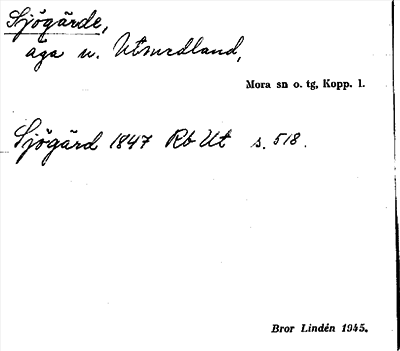 Sjögärde,
äga u. Utmedland,
Mora sn o. tg, Kopp. l.
Sjögärd 1847 Rb Ut s. 518.
Bror Lindén 1945.